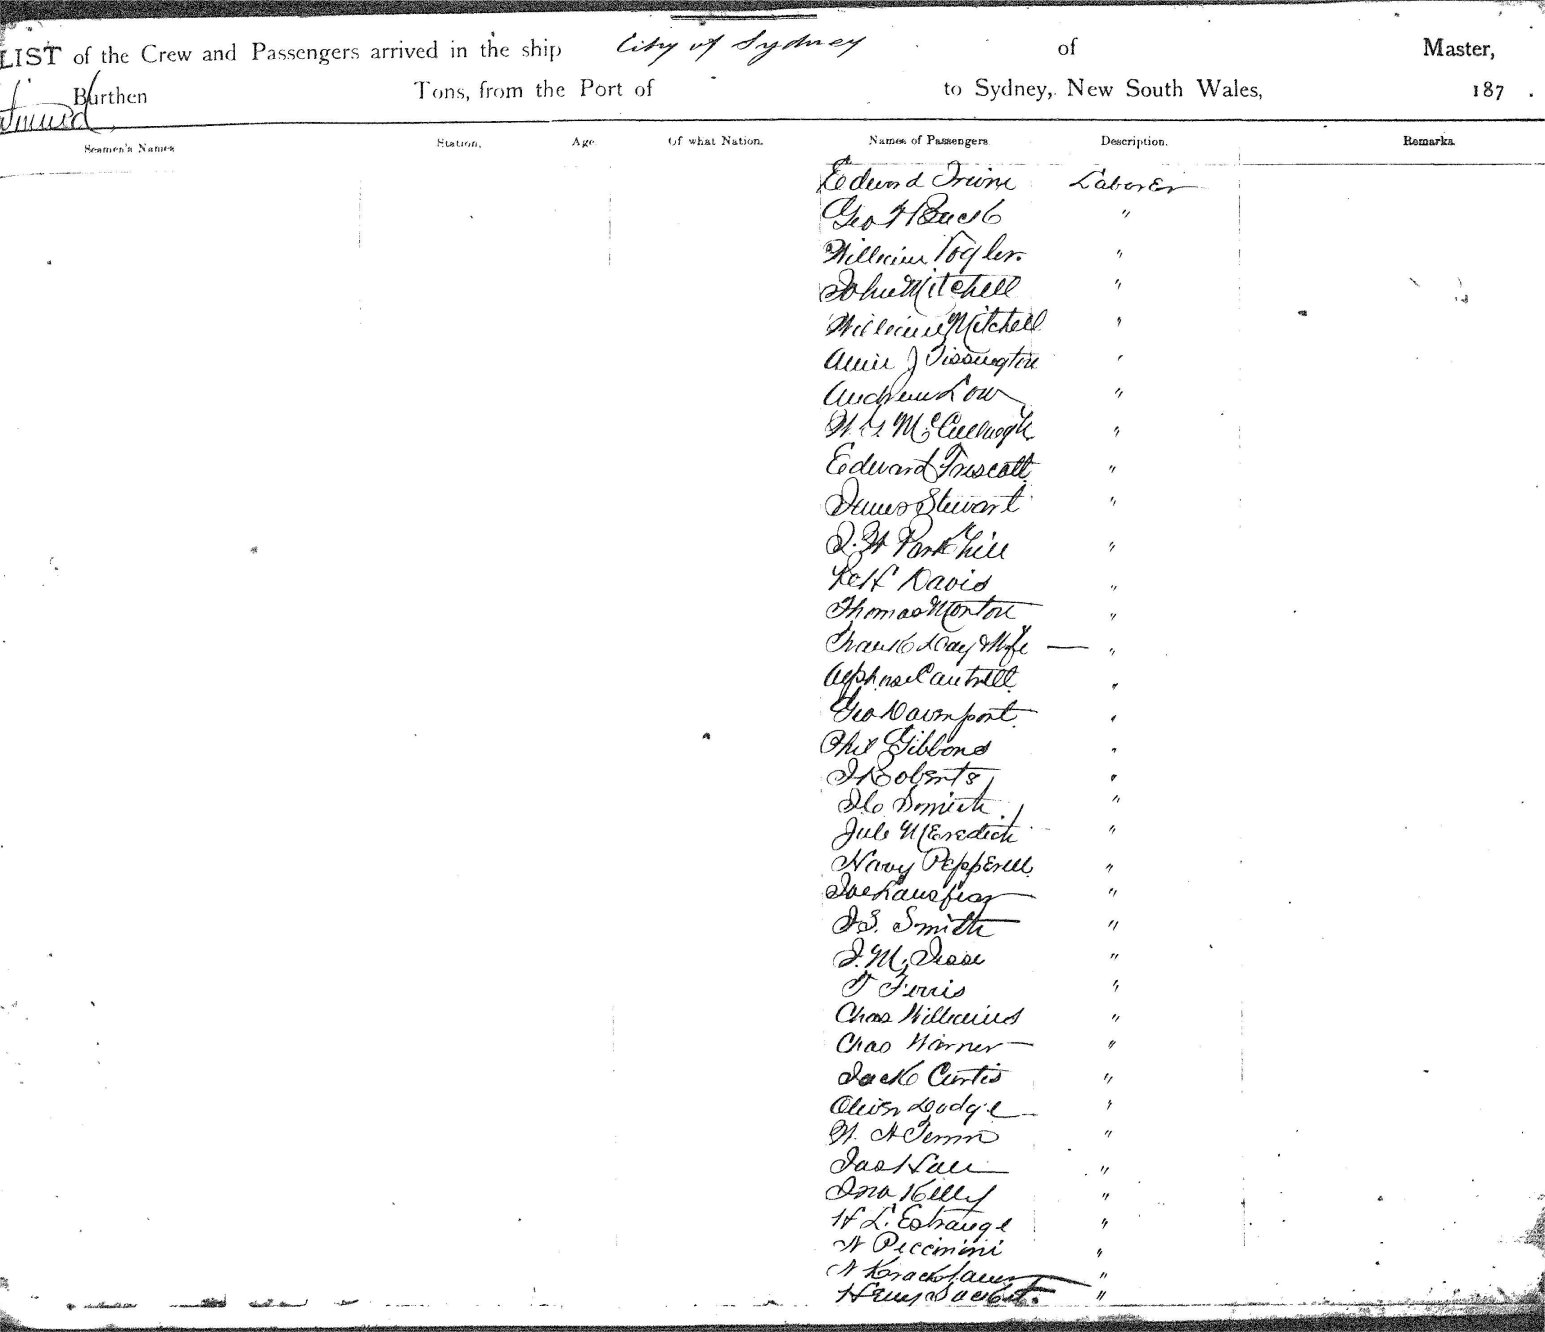 LIST of the Crew and Passengers arrived in the ship City of Sydney of Master,
Burthen Tons, from the Port of to Sydney, New South Wales, 187 .
Seamen's Names Station. Age Of what Nation. Names of Passengers Description. Remarks.
Edward Irvine Laborer
Geo Buck "
William "
John Mitchell "
William Mitchell "
J Tissington "
Andrew Low "
McCullough "
Edward Triscott "
James Stewart "
Parkhill "
Davis "
Thomas Morton "
Frank Day & Wife — "
Alphonse Cantrell "
Geo Davenport "
Phil Gibbons "
J Roberts "
"
Jule Meredith "
Pepperell "
Joe "
J.S. Smith "
J.M. "
T Ferris "
Chas Williams "
Chas Warner "
Jack Curtis "
Oliver Dodge "
W. H "
Jas Hall "
Jno Kelly "
H L'Estrange "
Piccinini "
"
Henry "